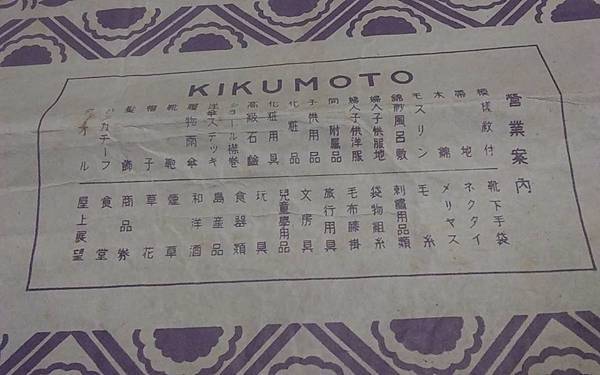 KIKUMOTO
營業案內
模様紋付
帶地
木綿
モスリン
錦紗風呂敷
婦人子供服地
婦人子供洋服
同附屬品
子供用品
化粧品
化粧用具
高級石鹼
ショール襟巻
洋傘ステッキ
履物雨傘
靴鞄
帽子
髪飾
ハンカチーフ
タオル
靴下手袋
ネクタイ
メリヤス
毛糸
刺繡用品類
袋物組糸
毛布膝掛
旅行用具
文房具
兒童學用品
玩具
食器類
島産品
和洋酒
煙草
草花
商品券
食堂
屋上展望